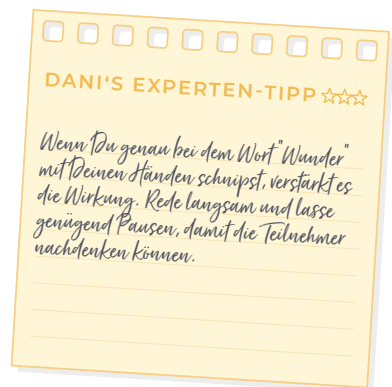 DANI'S EXPERTEN-TIPP
Wenn Du genau bei dem Wort "Wunder"
mit Deinen Händen schnipst, verstärkt es
die Wirkung. Rede langsam und lasse
genügend Pausen, damit die Teilnehmer
nachdenken können.